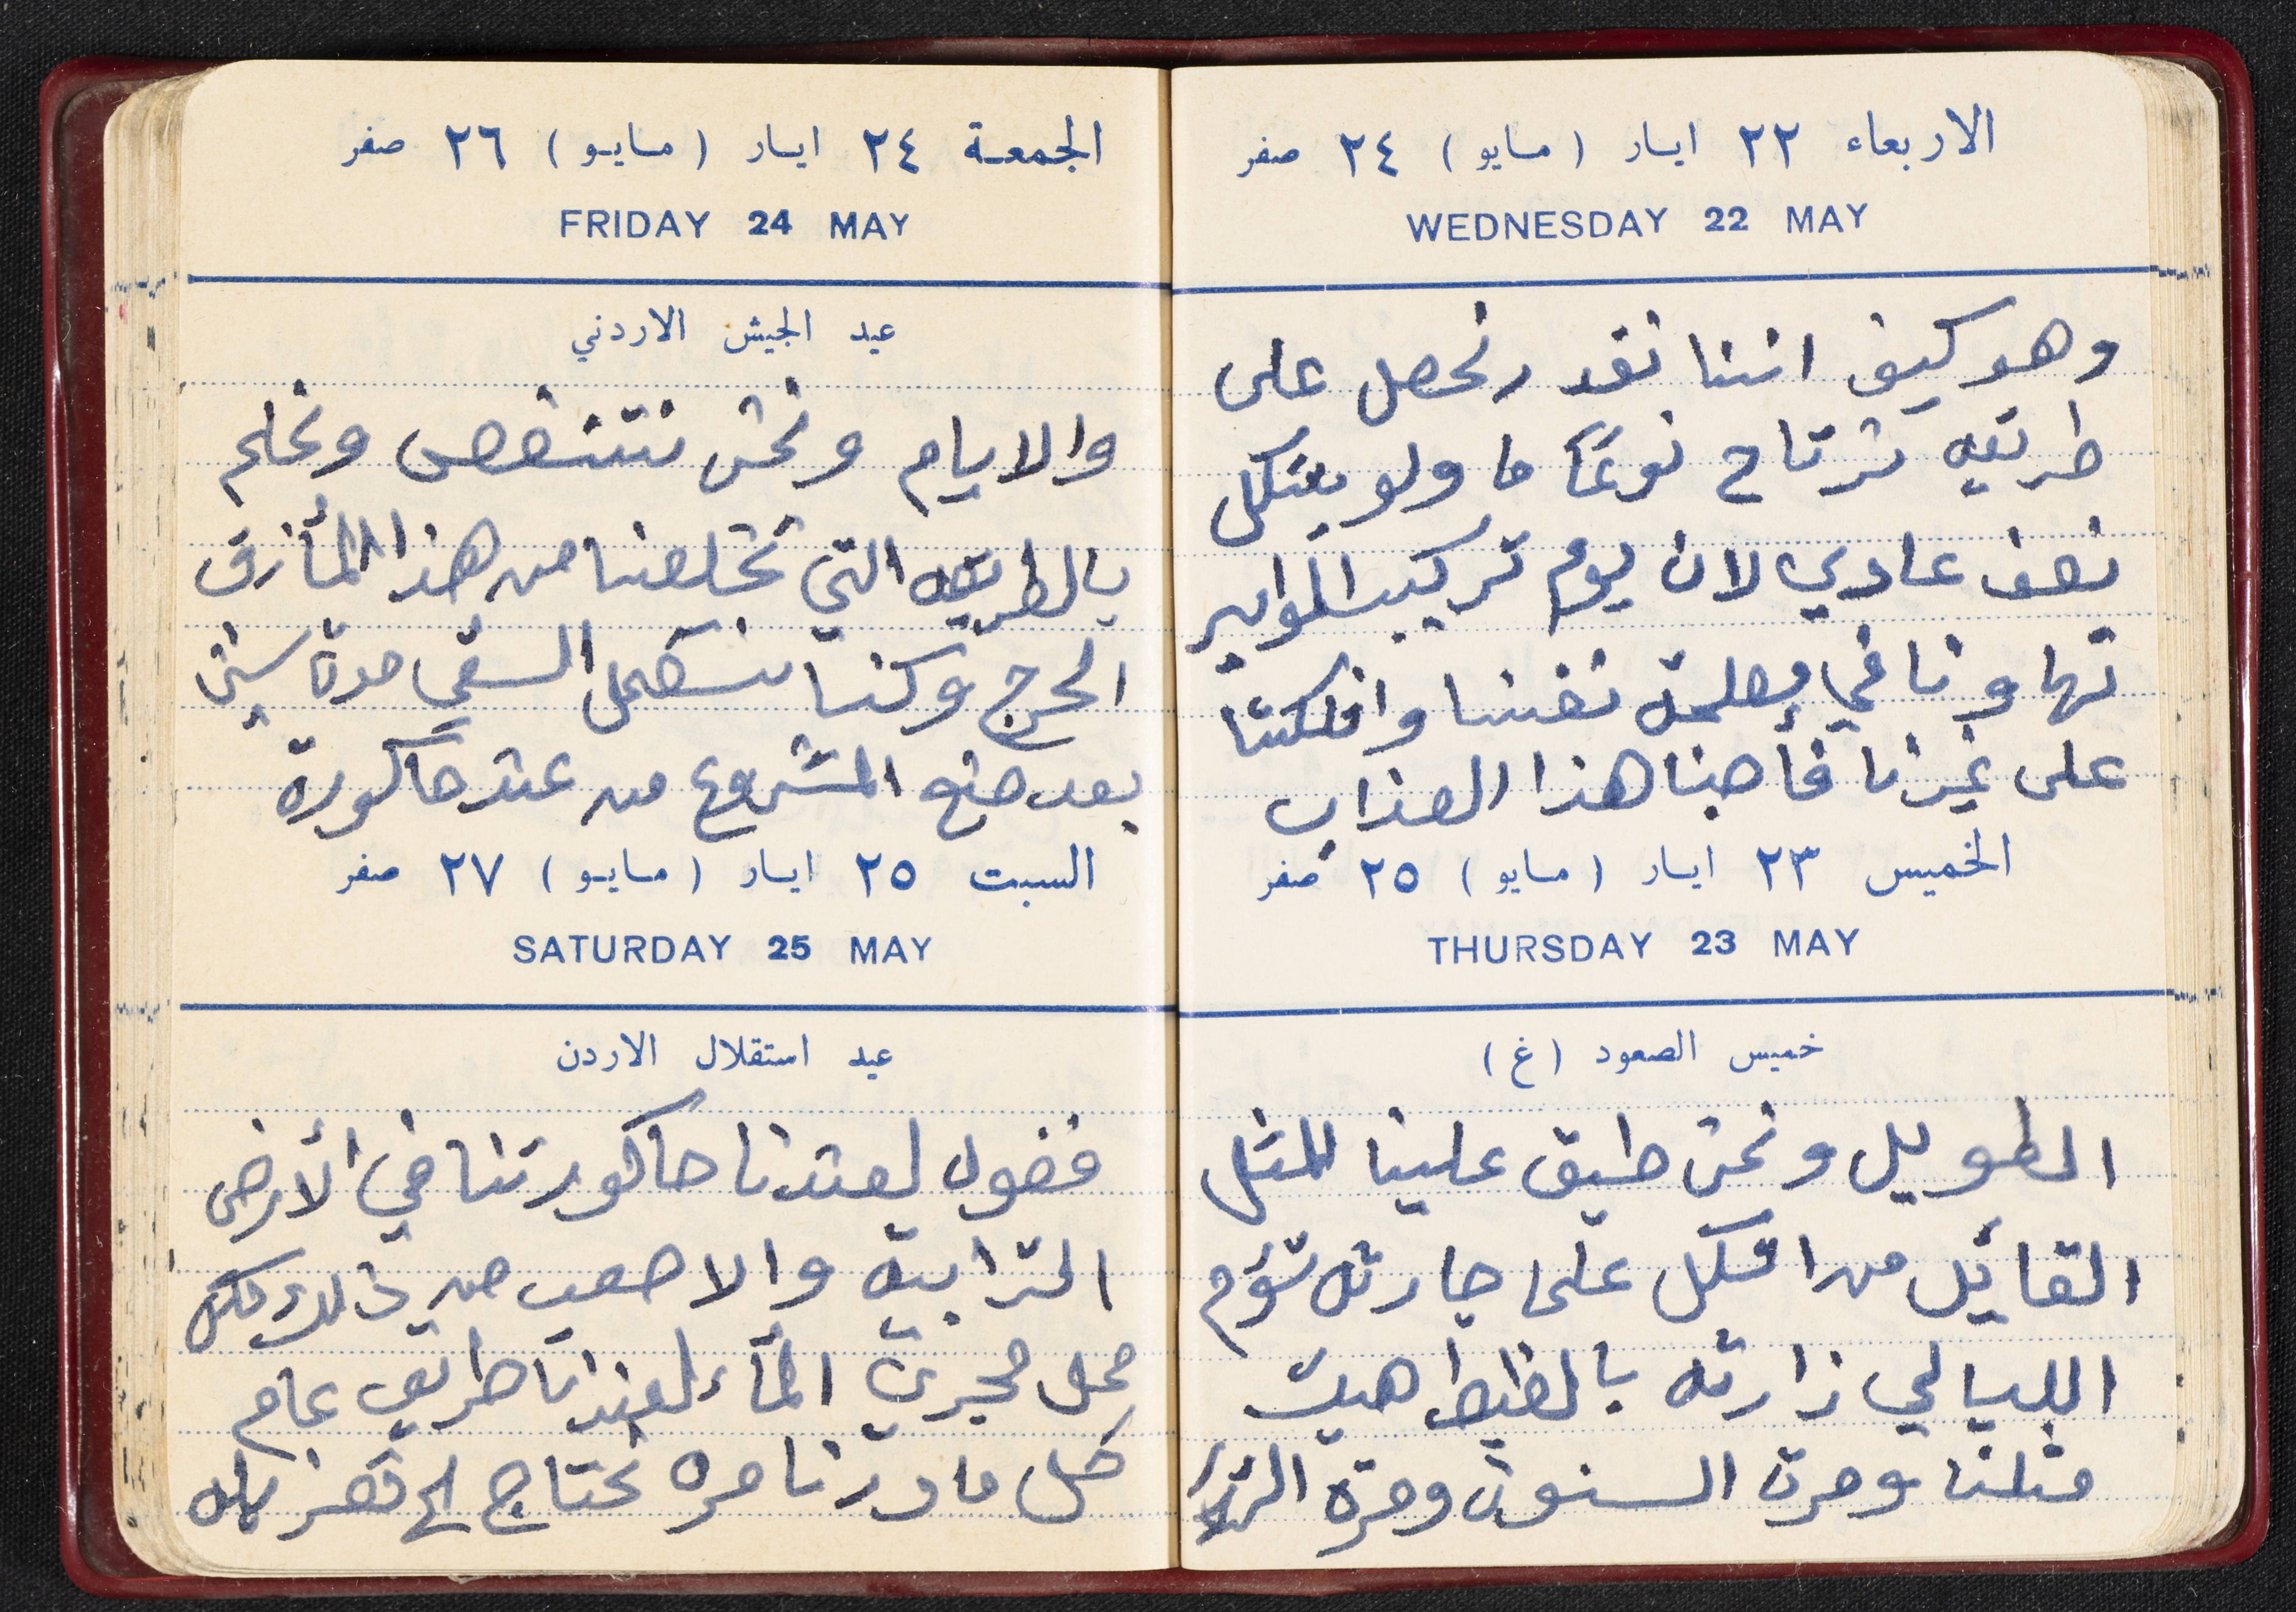 الاربعاء ٢٢ ايار (مايو) ٢٤ صفر
WEDNESDAY 22 MAY
وهو كيف اننا نقدر نحصل على
طريقه نرتاح نوعًا ما ولو بشكل
نصف عادي لان يوم تركيب المواسير
تهاونا في مصلحة نفسنا واتكلنا
على غيرنا فأصبنا هذا العذاب
الخميس ٢٣ ايار (مايو) ٢٥ صفر
THURSDAY 23 MAY
خميس الصعود (غ)
الطويل ونحن طبق علينا المثل
القائل من اتكل على جارته تؤم
الليالي زارته بالظبط هيك
مثلنا ومرت السنون ومرة
الجمعة ٢٤ ايار (مايو) ٢٦ صفر
FRIDAY 24 MAY
عيد الجيش الاردني
والايام ونحن نتنغص ونحلم
بالطريقه التي تخلصنا من هذا المأزق
الحرج وكنا السقي مدة سنين
بعد المشروع من عند حاكورة
السبت ٢٥ ايار (مايو) ٢٧ صفر
SATURDAY 25 MAY
عيد استقلال الاردن
فضول لعندنا حاكورتنا في الأرض
الترابية والاصعب من ذلك
محل مجرى المآء لعندنا طريق عام
كل ما درنا مره نحتاج